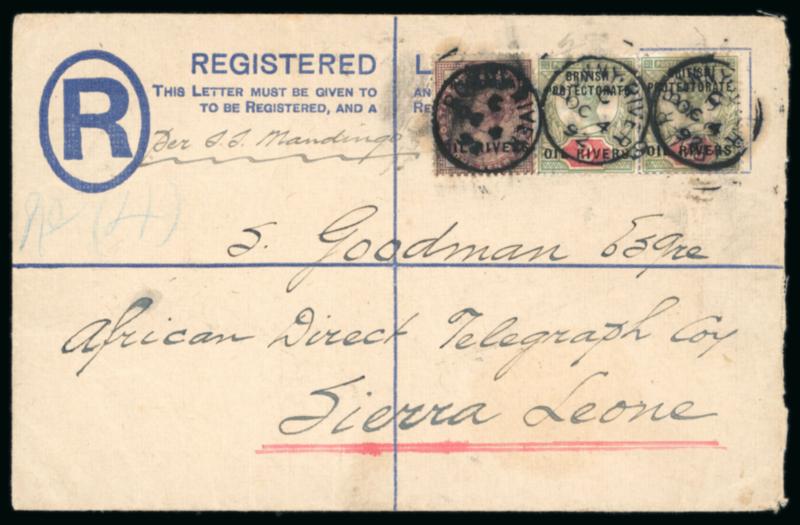 REGISTERED L
THIS LETTER MUST BE GIVEN TO AN
TO BE REGISTERED, AND A RE
R
Per S.S. Mandingo
BRITISH PROTECTORATE OIL RIVERS
BRITISH PROTECTORATE OIL RIVERS
OIL RIVERS
OC 4
(4)
S. Goodman Esqre
African Direct Telegraph Coy
Sierra Leone